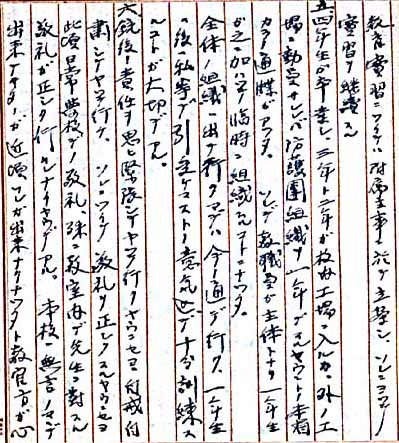 教育実習ニツイテハ附属主事ニ於テ立案シ、ソレニヨツテ
実習ヲ継続スル
五、四年生ガ卒業シ、三年ト二年ガ校内工場ニ入ルカ、外ノ工
場ニ動員サレレバ防護団組織ヲ一年生デスルヤウニト本省
カラ通牒ガアツタ。ソレデ教職員ガ主体トナリ一年生
ガ之ニ加ハツテ臨時ニ組織スルコトニナツタ。
全体ノ組織ニ出テ行クマデハ今ノ通デ行ク、一年生
ノ後私等デ引キ受ケルコトノ意気込デ十分訓練ス
ルコトガ大切デアル。
六、銃後ノ責任ヲ思ヒ緊張シテヤツテ行クヤウニセヨ、自戒自
粛シテヤツテ行ケ、ソレニツイテ敬礼ヲ正シクスルヤウニセヨ
此頃日常学校デノ敬礼、殊ニ教室内デ先生ニ対スル
敬礼ガ正シク行ハレナイヤウデアル。本校ハ無言ノマデ
出来テヰタガ近頃ソレガ出来ナクナツタト教官方ガ心